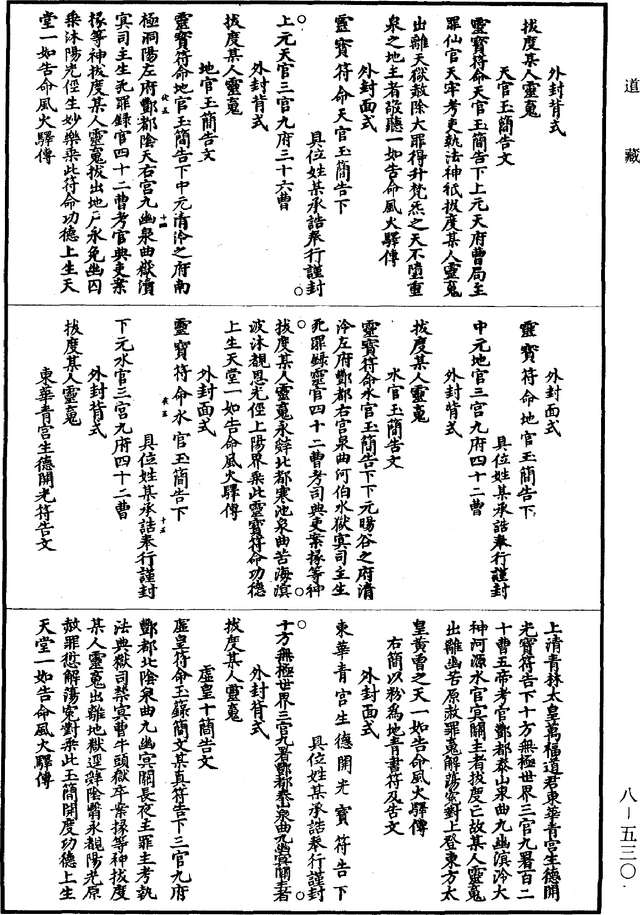 道藏
外封背式
拔度某人靈䰟
天官玉簡告文
靈寶符命天官玉簡告下上元天府曹局主
罪仙官天牢考吏執法神祇拔度某人靈䰟
出離天獄赦除大罪得升梵炁之天不墮重
泉之地主者敬聽一如告命風火驛傳
外封面式
靈寶符命天官玉簡告下
具位姓某承誥奉行謹封
上元天官三官九府三十六曹
外封背式
拔度某人靈䰟
地官玉簡告文
靈寶符命地官玉簡告下中元清泠之府南
極洞陽左府酆都陰天右宮九幽泉曲嶽瀆
冥司主生死罪錄官四十二曹考官典吏案
掾等神拔度某人靈䰟拔出地戶永免幽囚
乘沐陽光徑生妙樂乘此符命功德上生天
堂一如告命風火驛傳
外封面式
靈寶符命地官玉簡告下
具位姓某承誥奉行謹封
中元地官三宮九府四十二曹
外封背式
拔度某人靈䰟
水官玉簡告文
靈寶符命水官玉簡告下下元暘谷之府清
泠左府酆都右宮泉曲河伯水獄冥司主生
死罪錄靈官四十二曹考司典吏案掾等神
拔度某人靈䰟永辭北都寒池泉曲苦海溟
波沐覩恩光徑上陽界乘此靈寶符命功德
上生天堂一如告命風火驛傳
外封面式
靈寶符命水官玉簡告下
具位姓某承誥奉行謹封
下元水官三宮九府四十二曹
外封背式
拔度某人靈䰟
東華青宮生德開光符告文
上清青林太皇萬福道君東華青宮生德開
光寶符告下十方無極世界三官九署百二
十曹五帝考官酆都泰山泉曲九幽溟泠大
神河源水官冥關主者拔度亡故某人靈䰟
出離幽苦原赦罪䰟解蕩冤對上登東方太
皇黃曾之天一如告命風火驛傳
右簡以粉為地青書符及告文
外封面式
東華青宮生德開光寶符告下
具位姓某承誥奉行謹封
十方無極世界三官九署酆都泰山泉曲九幽冥關主者
外封背式
拔度某人靈䰟
虛皇十簡告文
虛皇符命玉籙簡文某真符告下三官九府
酆都北陰泉曲九幽冥關長夜主罪主考執
法典獄司禁冥曹牛頭獄卒案掾等神拔度
某人靈䰟出離地獄逕辭陰翳永覩陽光原
赦罪愆解蕩冤對乘此玉簡開度功德上生
天堂一如告命風火驛傳
八－五三〇